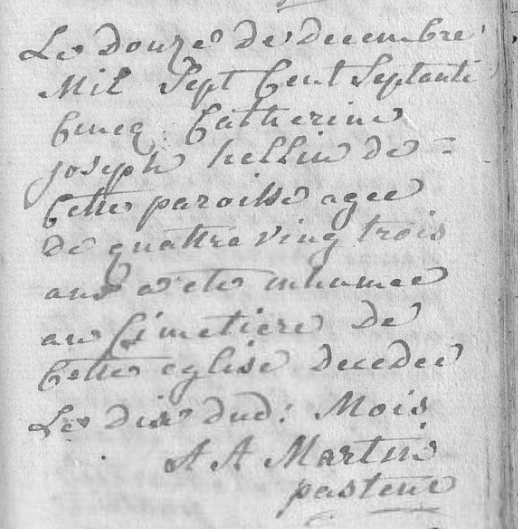 Le douze de decembre
Mil Sept Cent Septante
Cincq Catherine
joseph hellin de =
Cette paroisse agee
de quattre ving trois
ans a ete inhumee
au Cimetiere De
Cette eglise decedee
Le dix dud: Mois
A A Martin
pasteur